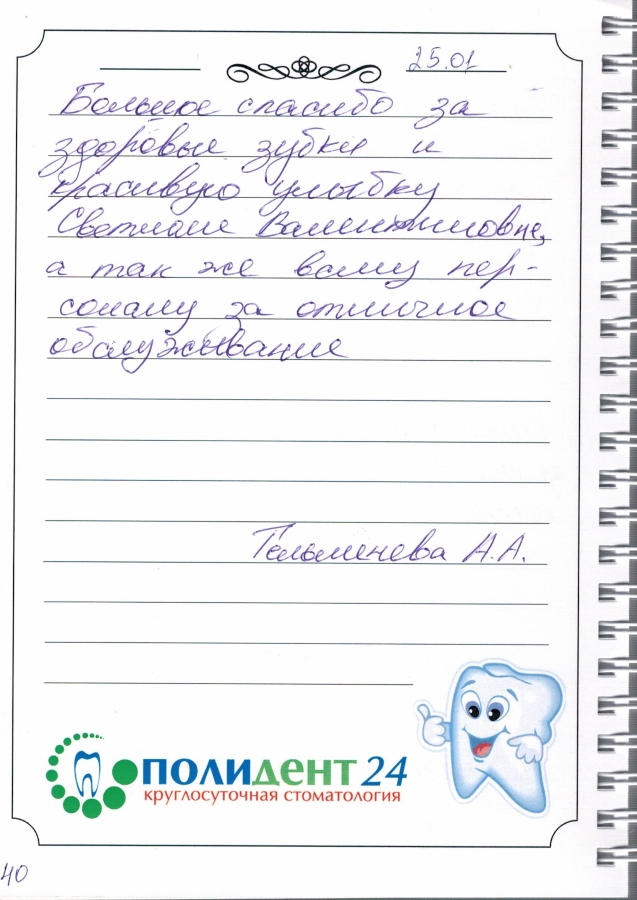 25.01
Большое спасибо за
здоровые зубки и
красивую улыбку
Светлане Валентиновне,
а так же всему пер-
соналу за отличное
обслуживание
Тельменева А.А.
ПОЛИДЕНТ 24
круглосуточная стоматология
40